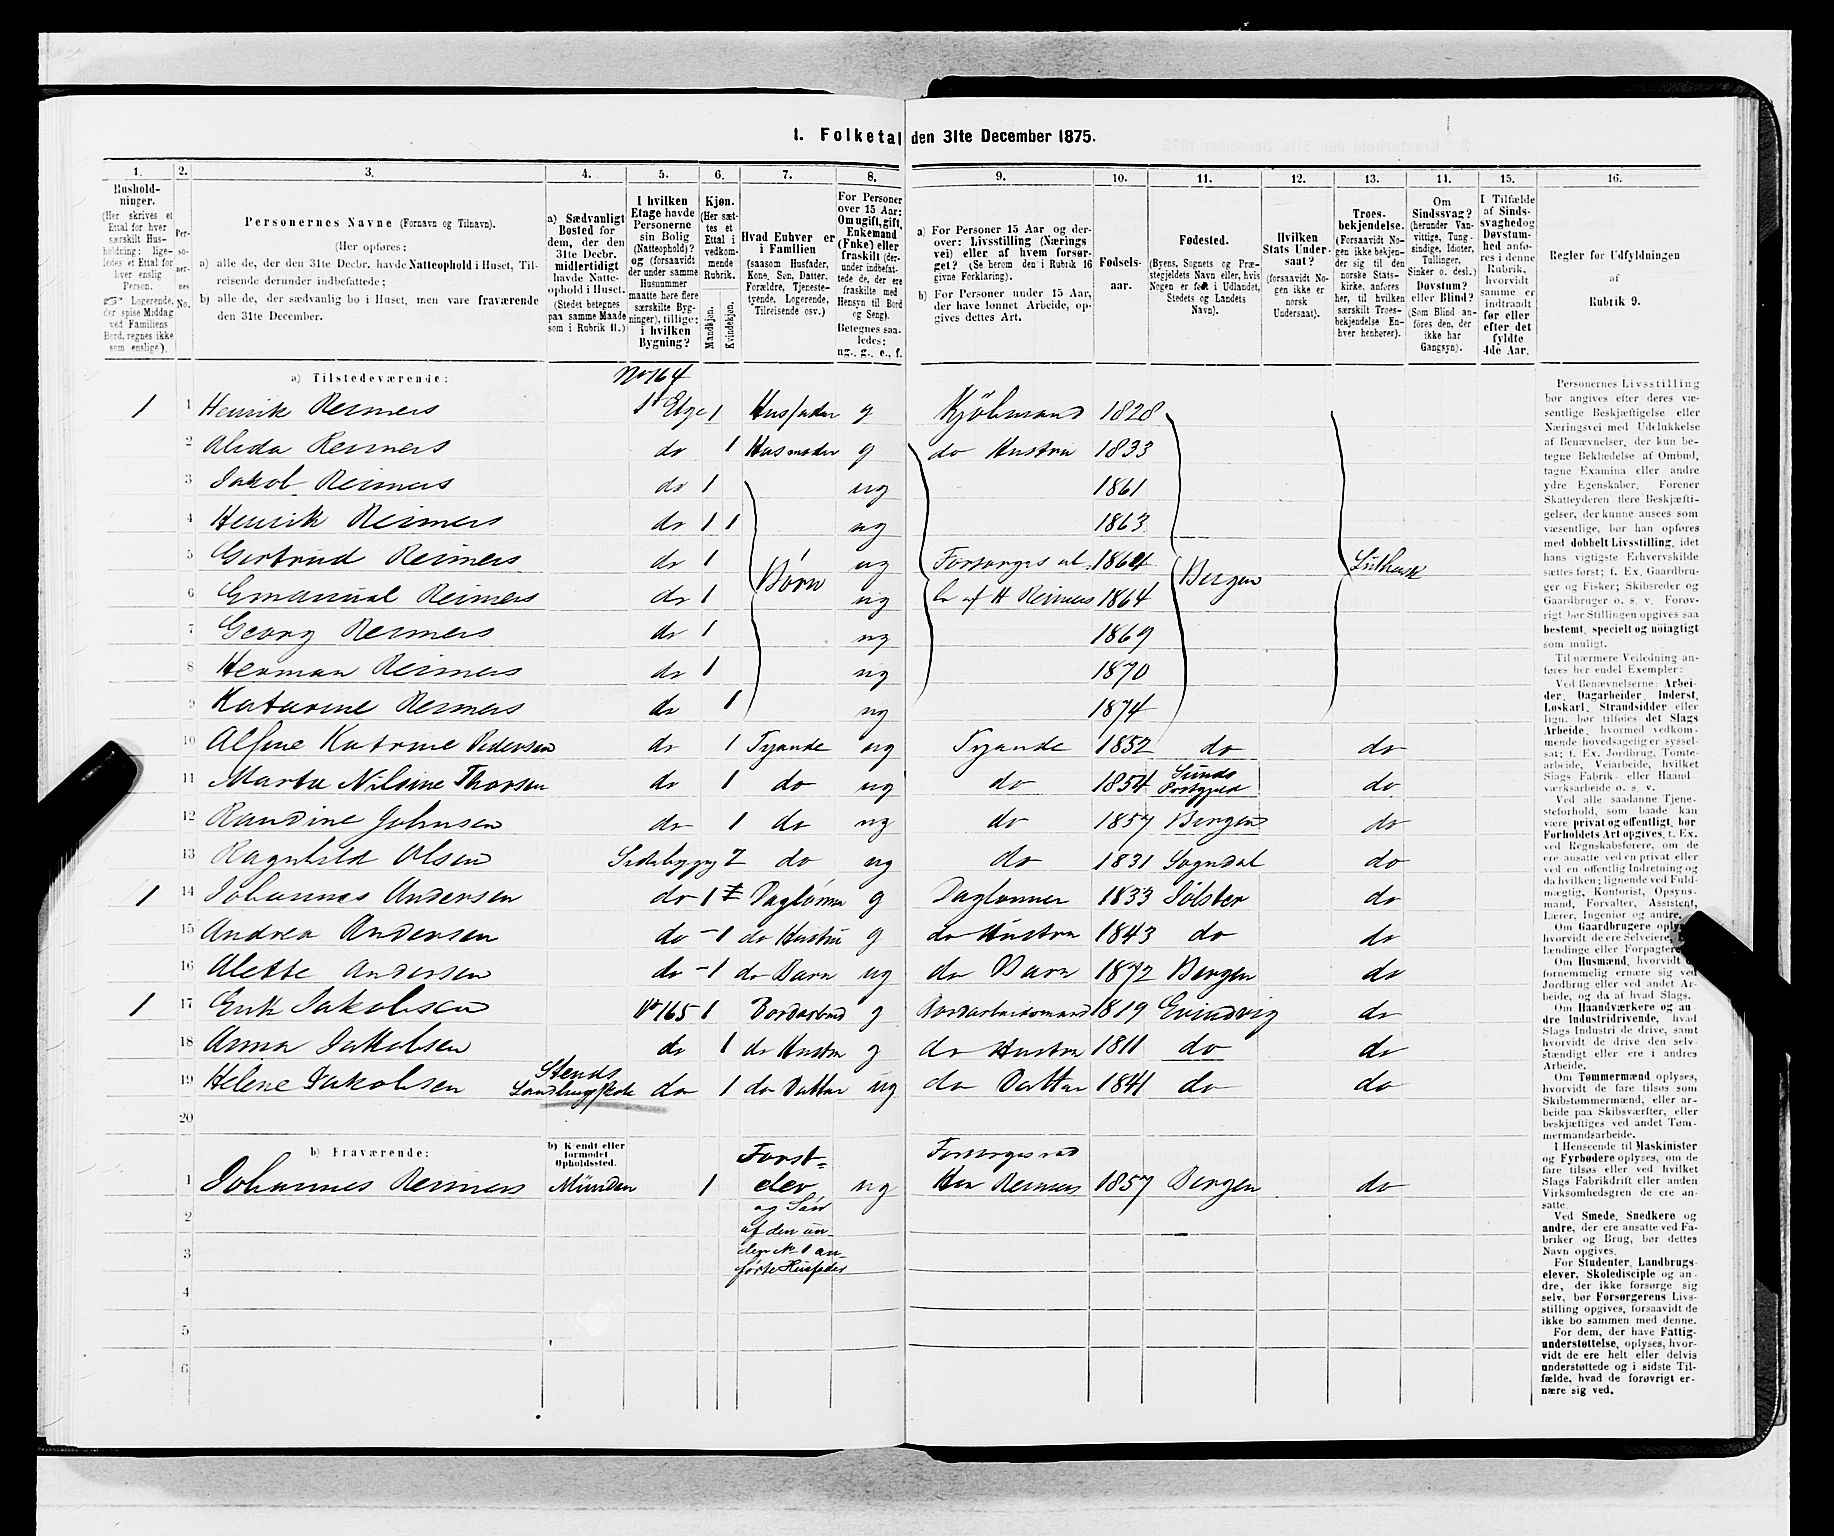 1. Folketal den 31te December 1875.
1. 2. 3. 4. 5. 6. 7. 8. 9. 10. 11. 12. 13. 14. 15. 16.
Husholdninger.
(Her skrives et
Ettal for hver
særskilt Husholdning; ligeledes et Ettal for
hver enslig
Person.
Logerende,
der spise Middag
ved Familiens
Bord, regnes ikke
som enslige).
Personernes No.
Personernes Navne (Fornavn og Tilnavn).
(Her opføres:
a) alle de, der den 31te Decbr. havde Natteophold i Huset, Tilreisende derunder indbefattede;
b) alle de, der sædvanlig bo i Huset, men vare fraværende
den 31te December.
a) Sædvanligt
Bosted for
dem, der den
31te Decbr.
midlertidigt
havde Natteophold i Huset.
(Stedet betegnes
paa samme Maade
som i Rubrik 11.)
I hvilken
Etage havde
Personerne
sin Bolig
(Natteophold)?
og (forsaavidt
der under samme
Husnummer
maatte høre flere
særskilte Bygninger), tillige:
i hvilken
Bygning?
Kjøn.
(Her sættes et
Ettal i
vedkommende
Rubrik.
Mandkjøn.
Kvindekjøn.
Hvad Enhver er
i Familien
(saasom Husfader,
Kone, Søn, Datter,
Forældre, Tjenestetyende, Logerende,
Tilreisende osv.)
For Personer
over 15 Aar:
Om ugift, gift,
Enkemand
(Enke) eller
fraskilt (derunder indbefattede de, der ere
fraskilte med
Hensyn til Bord
og Seng).
Betegnes saaledes:
ug., g., e., f.
a) For Personer 15 Aar og derover: Livsstilling (Næringsvei) eller af hvem forsørget? (Se herom den i Rubrik 16
givne Forklaring).
b) For Personer under 15 Aar,
der have lønnet Arbeide, opgives dettes Art.
Fødselsaar.
Fødested.
(Byens, Sognets og Præstegjeldets Navn eller, hvis
Nogen er født i Udlandet,
Stedets og Landets
Navn).
Hvilken
Stats Undersaat?
(forsaavidt Nogen ikke er
norsk
Undersaat).
Troesbekjendelse.
(Forsaavidt Nogen ikke bekjender sig til den
norske Statskirke, anføres
her, til hvilken
særskilt Troesbekjendelse Enhver henhører).
Om
Sindssvag?
(herunder Vanvittige, Tungsindige, Idioter,
Tullinger,
Sinker o. desl.)
Døvstum?
eller Blind?
(Som Blind anføres den, der
ikke har
Gangsyn).
I Tilfælde
af Sindssvaghed og
Døvstumhed anføres i denne
Rubrik,
hvorvidt
samme er
indtraadt
før eller
efter det
fyldte
4de Aar.
Regler for Udfyldningen
af
Rubrik 9.
a) Tilstedeværende:
No 164
1 1 Henrik Reimers 1st Etge 1 Husfader g Kjöbmand 1828
2 Alida Reimers do 1 Husmoder g do Hustru 1833
3 Jakob Reimers do 1 ug 1861
4 Henrik Reimers do 1 1 ug 1863
5 Gertrud Reimers do 1 Børn ug Forsørges al 1864 Bergen Luthersk
6 Emanuel Reimers do 1 ug le af H Reimers 1864
7 Georg Reimers do 1 ug 1869
8 Herman Reimers do 1 ug 1870
9 Katarine Reimers do 1 ug 1874
10 Alfine Katrine Pedersen do 1 Tyende ug Tyende 1852 do do
11 Marta Nilsine Thorsen do 1 do ug do 1854 Sunds do
12 Randine Johnsen do 1 do ug do 1857 Bergen do
13 Ragnhild Olsen Sidebygg 2 do ug do 1831 Sogndal do
1 14 Johannes Andersen do 1 Daglønner g Daglønner 1833 Jölster do
15 Andrea Andersen do - 1 do Hustru g do Hustru 1843 do do
16 Alette Andersen do - 1 do Barn ug do Barn 1872 Bergen do
1 17 Erik Jakobsen No 165 1 Bordarbeid g Bordarbeidsmand 1819 Evindvig do
18 Anna Jakobsen do 1 do Hustru g do Hustru 1811 do do
19 Helene Jakobsen Stends Landbrugsskole do 1 do Datter ug do Datter 1841 do do
20
b) Fraværende:
b) Kjendt eller
formodet
Opholdssted.
1 Johannes Reimers Münden 1 Forst=
elev ug Forsörges ved
Hen Reimers 1857 Bergen do
og Sön
af den un-
der No 1 an-
förte Husfader
2
3
4
5
6
Personernes Livsstilling
bør angives efter deres væsentlige Beskjæftigelse eller
Næringsvei med Udelukkelse
af Benævnelser, der kun betegne Beklædelse af Ombud,
tagne Examina eller andre
ydre Egenskaber. Forener
Skatteyderen flere Beskjæftigelser, der kunne ansees som
væsentlige, bør han opføres
med dobbelt Livsstilling, idet
hans vigtigste Erhvervskilde
sættes først; f. Ex. Gaardbruger og Fisker; Skibsreder og
Gaardbruger o. s. v. Forøvrigt bør Stillingen opgives saa
bestemt, specielt og nøiagtigt
som muligt.
Til nærmere Veiledning anføres her endel Exempler:
Ved Benævnelserne: Arbeider, Dagarbeider, Inderst,
Løskarl, Strandsidder eller
lign. bør tilføies det Slags
Arbeide, hvormed vedkommende hovedsagelig er sysselsat; f. Ex. Jordbrug, Tomtearbeide, Veiarbeide, hvilket
Slags Fabrik- eller Haandværksarbeide o. s. v.
Ved alle saadanne Tjenesteforhold, som baade kan
være privat og offentligt, bør
Forholdets Art opgives, t. Ex.
ved Regnskabsførere, om de
ere ansatte ved en privat eller
ved en offentlig Indretning og
da hvilken; lignende ved Fuldmægtig, Kontorist, Opsynsmand, Forvalter, Assistent,
Lærer, Ingeniør og andre.
Om Gaardbrugere oplyses,
hvorvidt de ere Selveiere,
Leilændinge eller Forpagtere.
Om Husmænd, hvorvidt de
fornemmelig ernære sig ved
Jordbrug eller ved andet Arbeide, og da af hvad Slags.
Om Haandværkere og andre Industridrivende, hvad
Slags Industri de drive, samt
hvorvidt de drive den selvstændigt eller ere i andres
Arbeide.
Om Tømmermænd oplyses,
hvorvidt de fare tilsøs som
Skibstømmermænd, eller arbeide paa Skibsværfter, eller
beskjæftiges ved andet Tømmermandsarbeide.
I Henseende til Maskinister
og Fyrbødere oplyses, om de
fare tilsøs eller ved hvilket
Slags Fabrikdrift eller anden
Virksomhedsgren de ere ansatte.
Ved Smede, Snedkere og
andre, der ere ansatte ved Fabriker og Brug, bør dettes
Navn opgives.
For Studenter, Landbrugselever, Skoledisciple og andre, der ikke forsørge sig
selv, bør Forsørgerens Livsstilling opgives, forsaavidt de
ikke bo sammen med denne.
For dem, der have Fattigunderstøttelse, oplyses, hvorvidt de ere helt eller delvis
understøttede og i sidste Tilfælde, hvad de forøvrigt ernære sig ved.